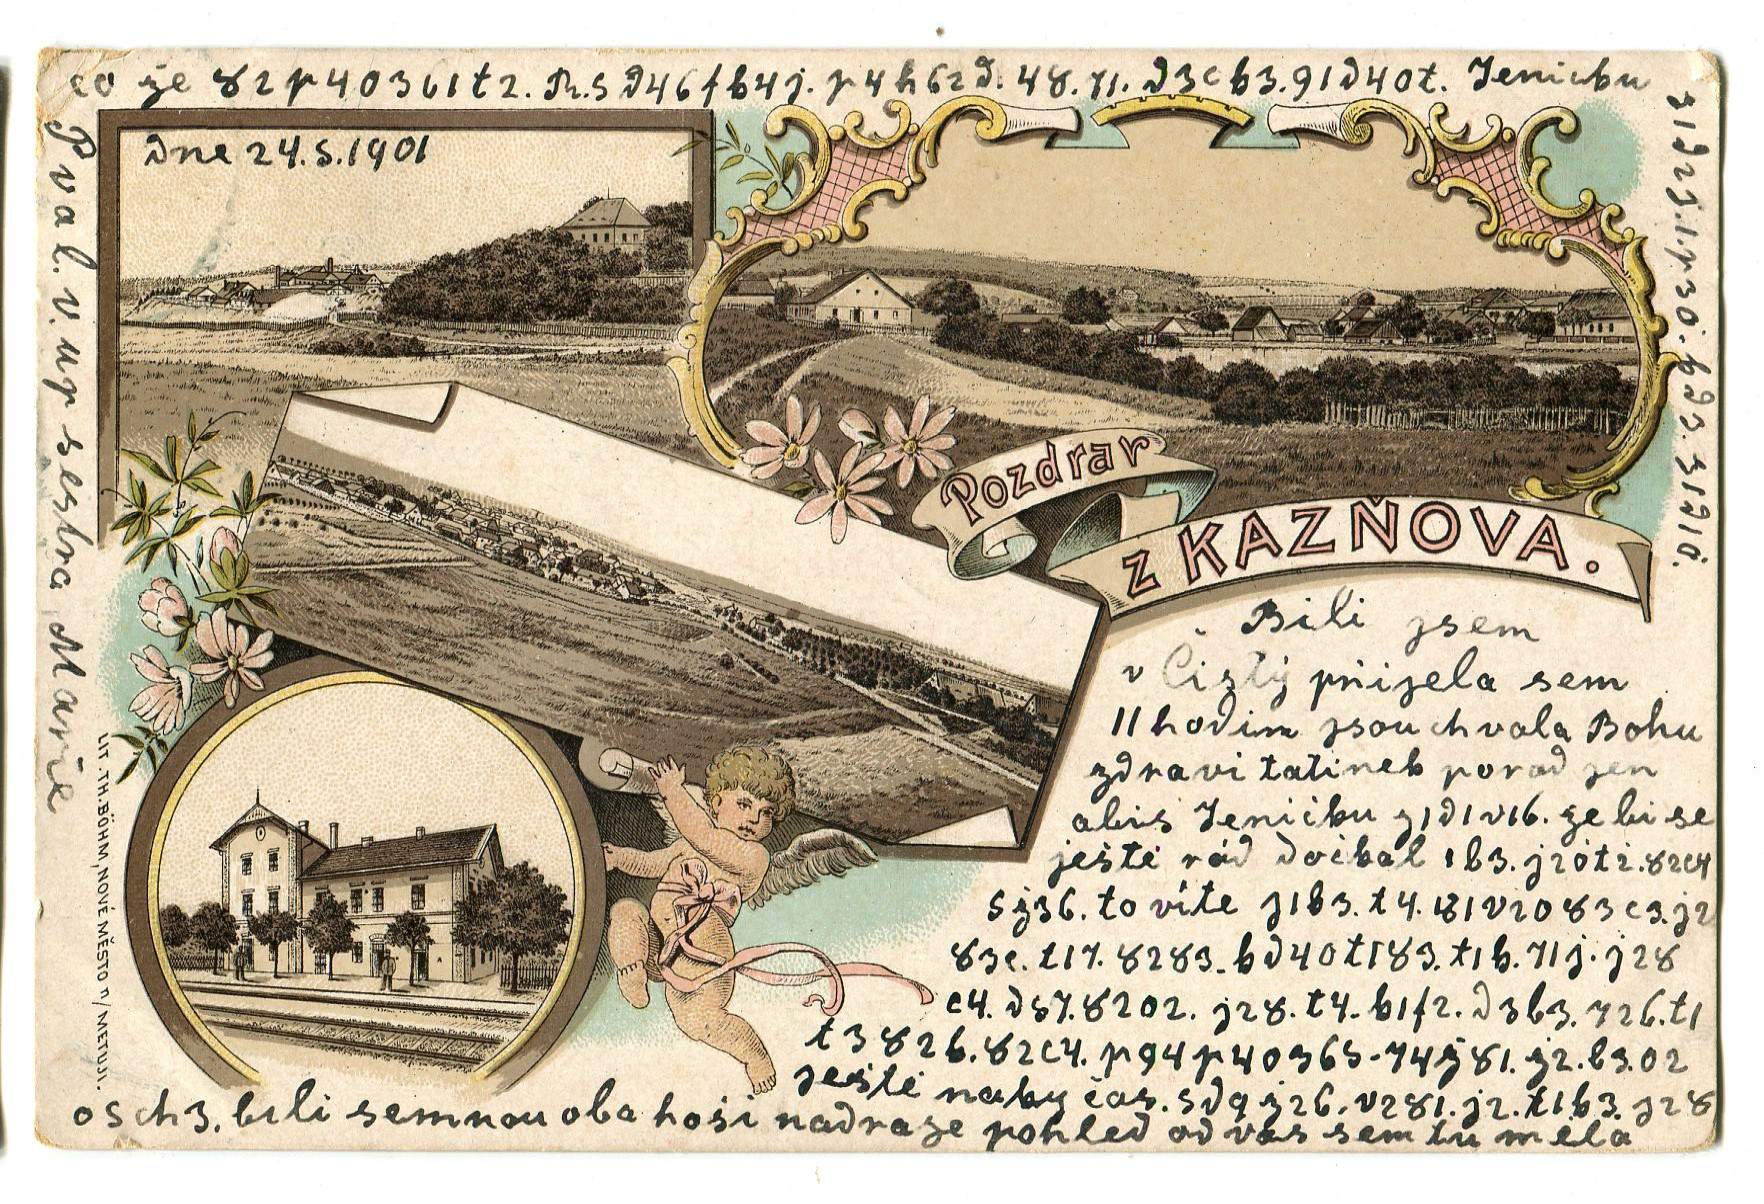 co že 82 p40361t2. Th.5 d46fb4j. p4h62d. 48.71. d3cb3.91d40t. Jeničku
31d25.1p30.bd3.31910.
dne 24.5.1901
Pozdrav
z KAZŇOVA.
Bili jsem
v Čistý přijela sem
11 hodin jsou chvala Bohu
zdravi tatinek porad jen
abis Jeničku 31d1v16. že bi se
ještě rád dočkal 1b3. j20t2.82c4
5 ž36. to víte j1b3. t4. 181v2083c3. j2
83c. t17. 8283. bd40t183. t1b. 71j. j28
c4. d57.8202. j28. t4. b1f2. d3b3. 726. t1
t382b.82c4. p94p40365-74ž81. j2. b3.02
ještě naky čas. 5d9 ž26. v281. j2. t1.b3. j28
05ch3. bili semnou oba hoši nadraze pohled od vas sem tu měla
P val. v. up sestra Marie
LIT. TH. BÖHM, NOVÉ MĚSTO n/METUJI.